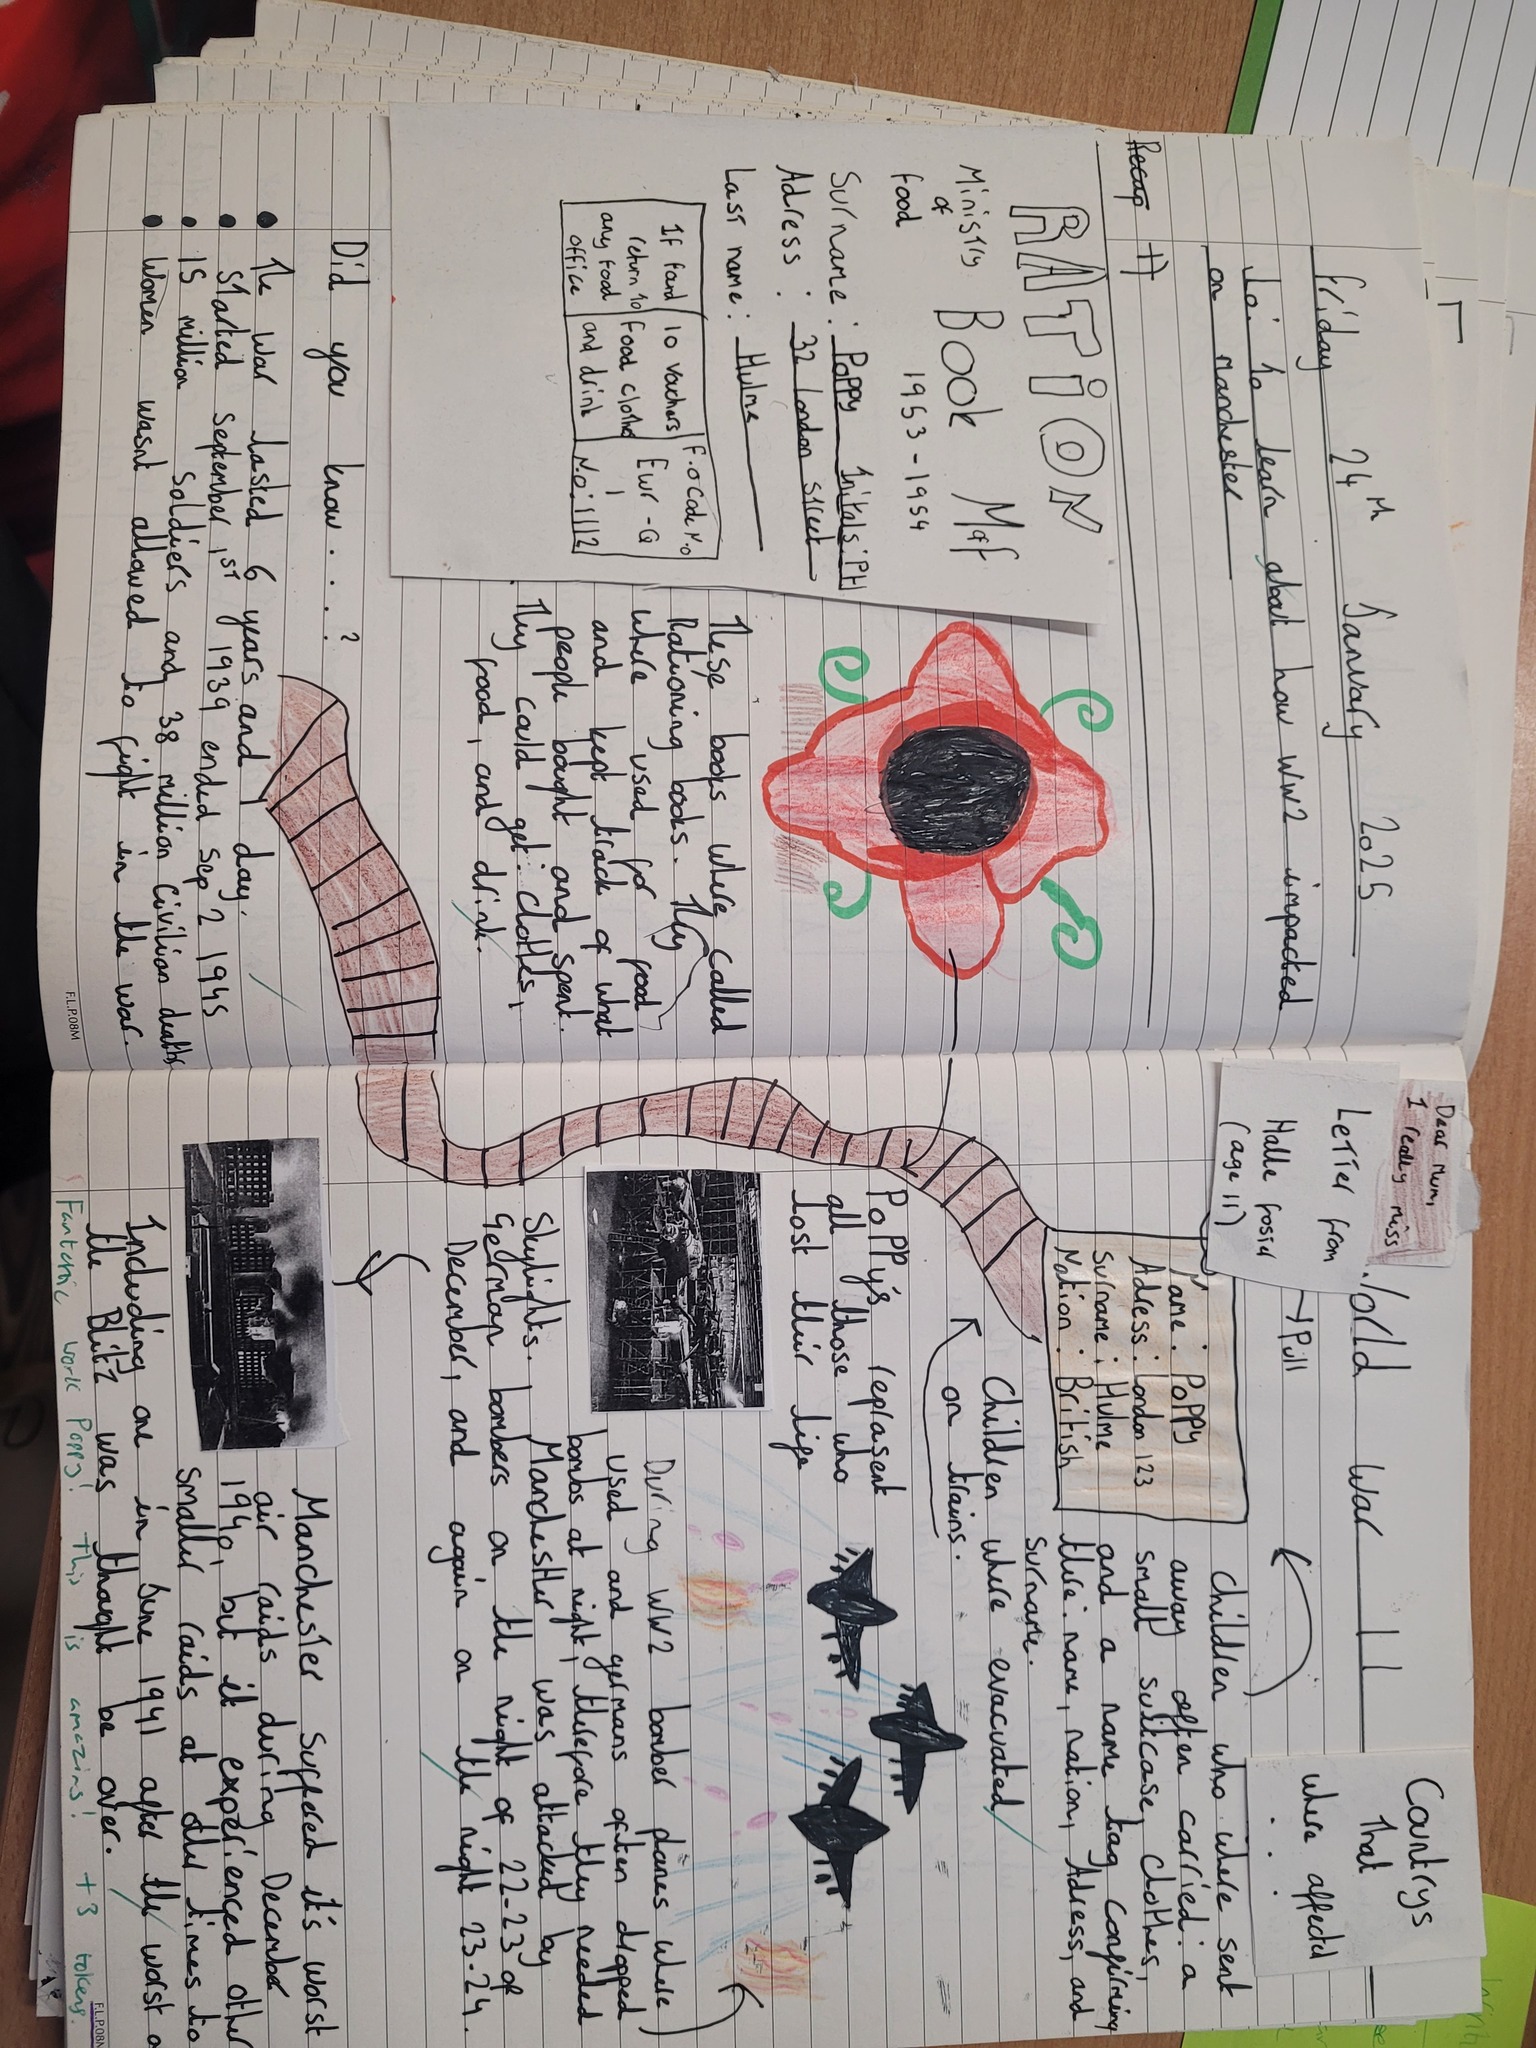 Friday 24th January 2025
Lo: To learn about how WW2 impacked
on manchester
Recap 1)
RATiON
Ministry of food
BOOK Maf
1953-1954
Surname: Poppy Initals: PH
Adress: 32 London street
Last name: Hulme
If found return to any food office
10 vouchers Food clothes and drink
F.o Code N.o
Ewr-Q
N.o: 1112
These books where called
Rationing books. They
where used for food
and kept track of what
people bought and spent.
They could get: clothes,
food, and drink.
Did you know...?
The war lasted 6 years and 1 day.
Started September 1st 1939 ended Sep 2 1945
15 million Soldiers and 38 million Civilian deaths
Women wasnt allowed to fight in the war.
F.L.P.08M
Dear mum,
I really miss
Letter from
Halle fosid
(age 11)
World War 11
Pull
Countrys
That
where affectd
. . .
Name: Poppy
Adress: London 123
Surname: Hulme
Nation: British
Children who where sent
away often carried: a
small suitcase, clothes,
and a name tag confirming
there: name, nation, Adress, and
surname.
Children where evacuated
on trains.
Poppy's replasent
all those who
lost their life
During WW2 bomber planes where
used and germans often dropped
bombs at night, therefore they needed
Skylights. Manchester was attacked by
German bombers on the night of 22-23 of
December, and again on the night 23-24.
Manchester Suffered it's worst
air raids during December
1940, but it experienced other
smaller raids at other times to
Including one in June 1941 after the worst o
the Blitz was thought be over.
Fantastic work Poppy! this is amazing! +3 tokens.
F.L.P.08M